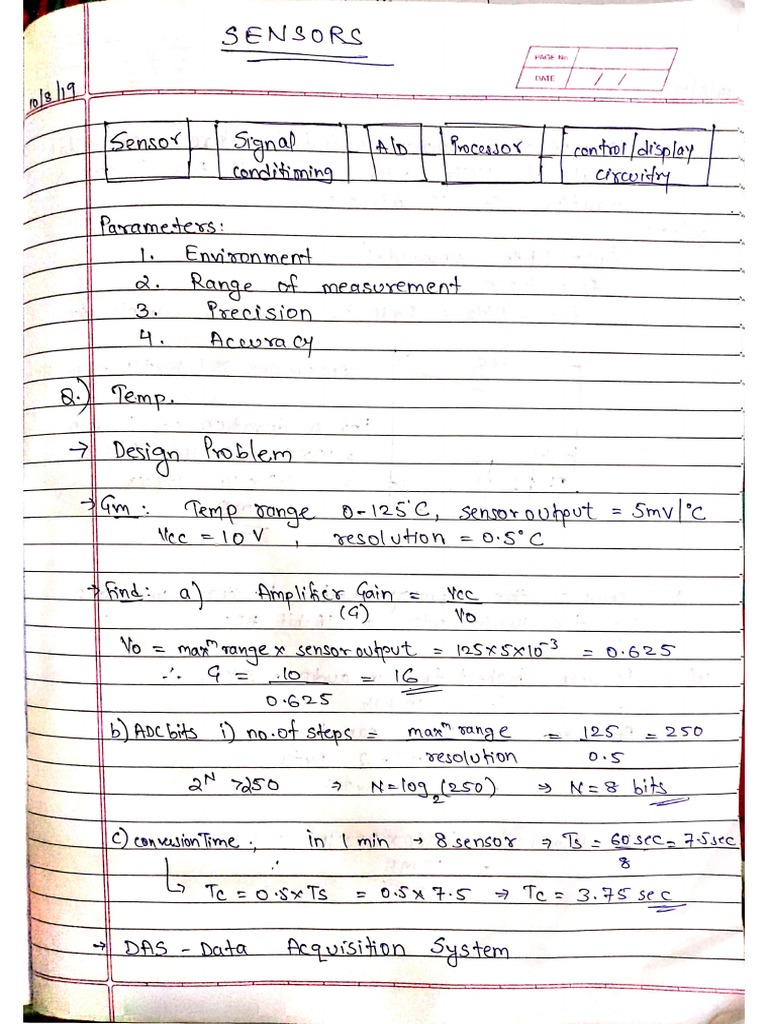 SENSORS
PAGE No.
DATE / /
10/8/19
Sensor Signal conditioning A/D Processor control/display circuitry
Parameters:
1. Environment
2. Range of measurement
3. Precision
4. Accuracy
Q.) Temp.
→ Design Problem
→ Gn: Temp range 0-125°C, sensor output = 5mv/°C
Vcc = 10 V , resolution = 0.5°C
→ Find: a) Amplifier Gain = Vcc
(G) Vo
Vo = maxᵐ range x sensor output = 125x5x10⁻³ = 0.625
∴ G = 10 = 16
0.625
b) ADC bits i) no. of steps = maxᵐ range = 125 = 250
resolution 0.5
2ᴺ ≥ 250 ⇒ N = log₂(250) ⇒ N = 8 bits
c) conversion Time, in 1 min → 8 sensor ⇒ Ts = 60 sec = 7.5 sec
8
↳ Tc = 0.5 x Ts = 0.5 x 7.5 ⇒ Tc = 3.75 sec
→ DAS - Data Acquisition System